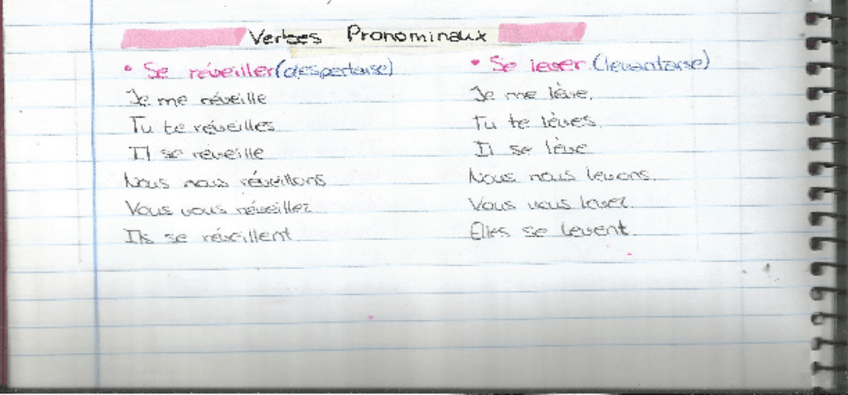 Verbes Pronominaux
• Se réveiller (despertarse)
Je me réveille
Tu te réveilles
Il se réveille
Nous nous réveillons
Vous vous réveillez
Ils se réveillent
• Se lever (levantarse)
Je me lève.
Tu te lèves.
Il se lève
Nous nous levons.
Vous vous levez.
Elles se levent.